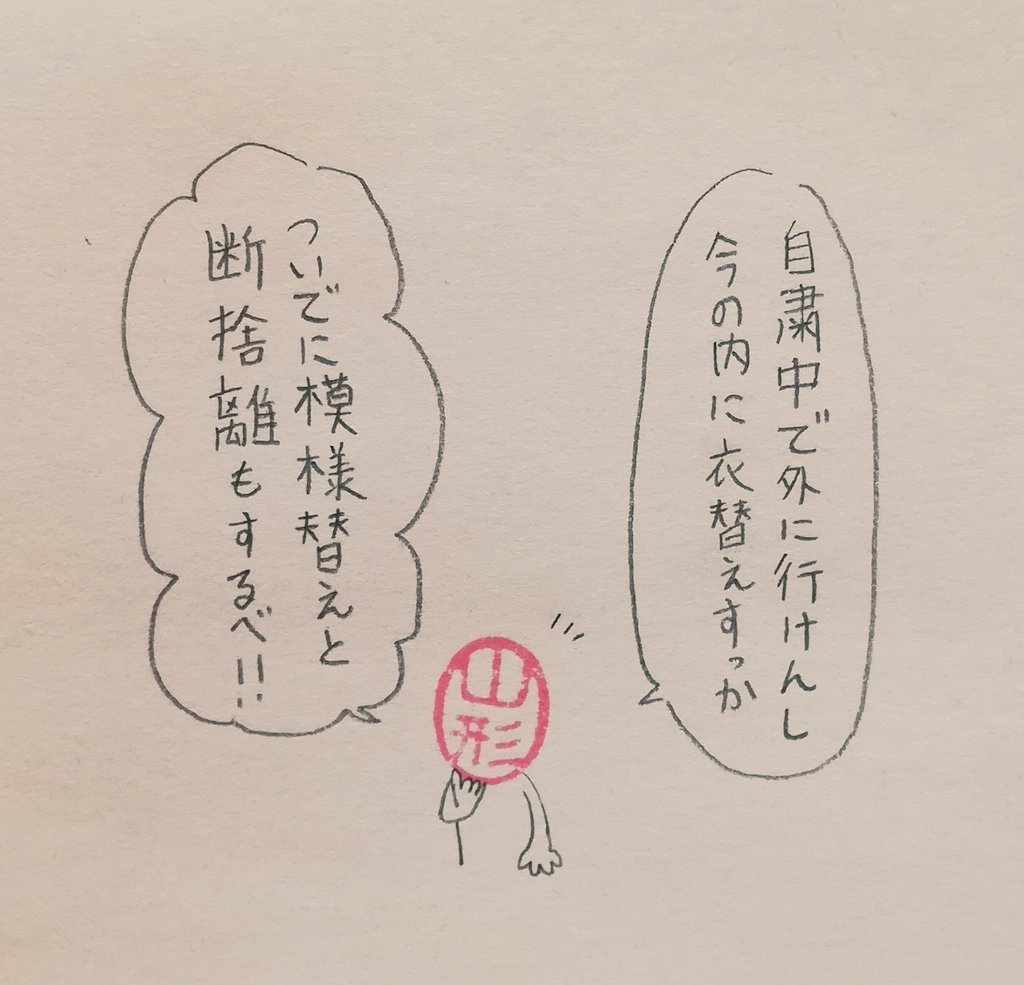 自粛中で外に行けんし
今の内に衣替えすっか
ついでに模様替えと
断捨離もするべ!!
山形